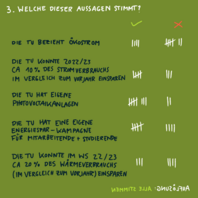 3. WELCHE DIESER AUSSAGEN STIMMT?
DIE TU BEZIEHT ÖKOSTROM
DIE TU KONNTE 2022/23
CA 10% DES STROMVERBRAUCHS
IM VERGLEICH ZUM VORJAHR EINSPAREN
DIE TU HAT EIGENE
PHOTOVOLTAIKANLAGEN
DIE TU HAT EINE EIGENE
ENERGIESPAR-KAMPAGNE
FÜR MITARBEITENDE + STUDIERENDE
DIE TU KONNTE IM WS 22/23
CA 20% DES WÄRMEVERBRAUCHS
(IM VERGLEICH ZUM VORJAHR) EINSPAREN